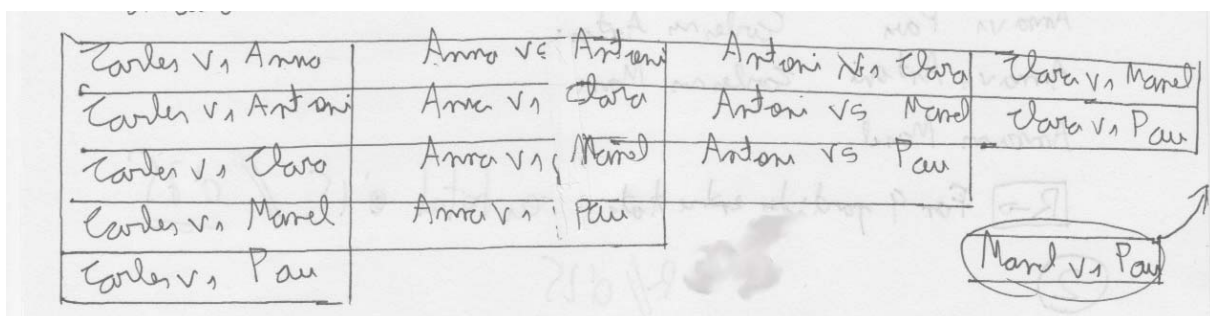 Carles vs Anna Anna vs Antoni Antoni vs Clara Clara vs Manel
Carles vs Antoni Anna vs Clara Antoni vs Manel Clara vs Pau
Carles vs Clara Anna vs Manel Antoni vs Pau
Carles vs Manel Anna vs Pau
Carles vs Pau
Manel vs Pau